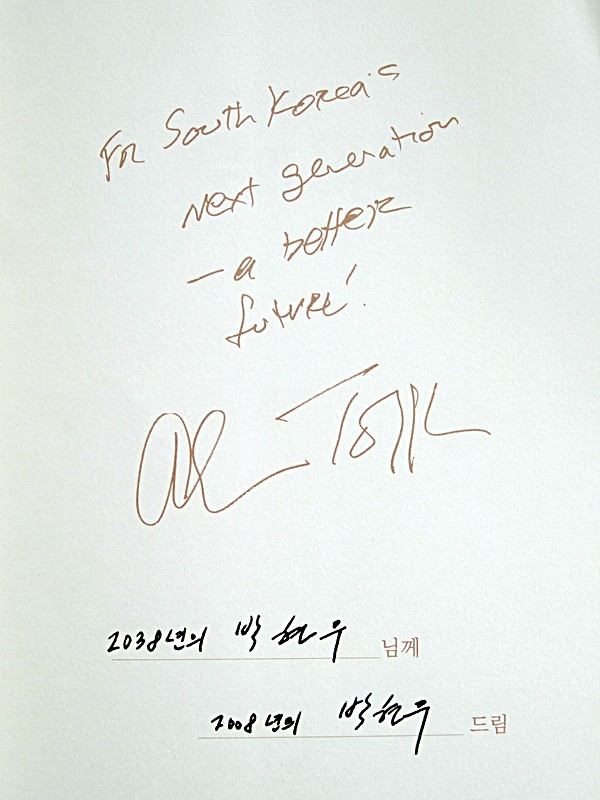 For South Korea's
next generation
— a better
future!
Al Toffler
2038년의 박현우 님께
2008년의 박현우 드림